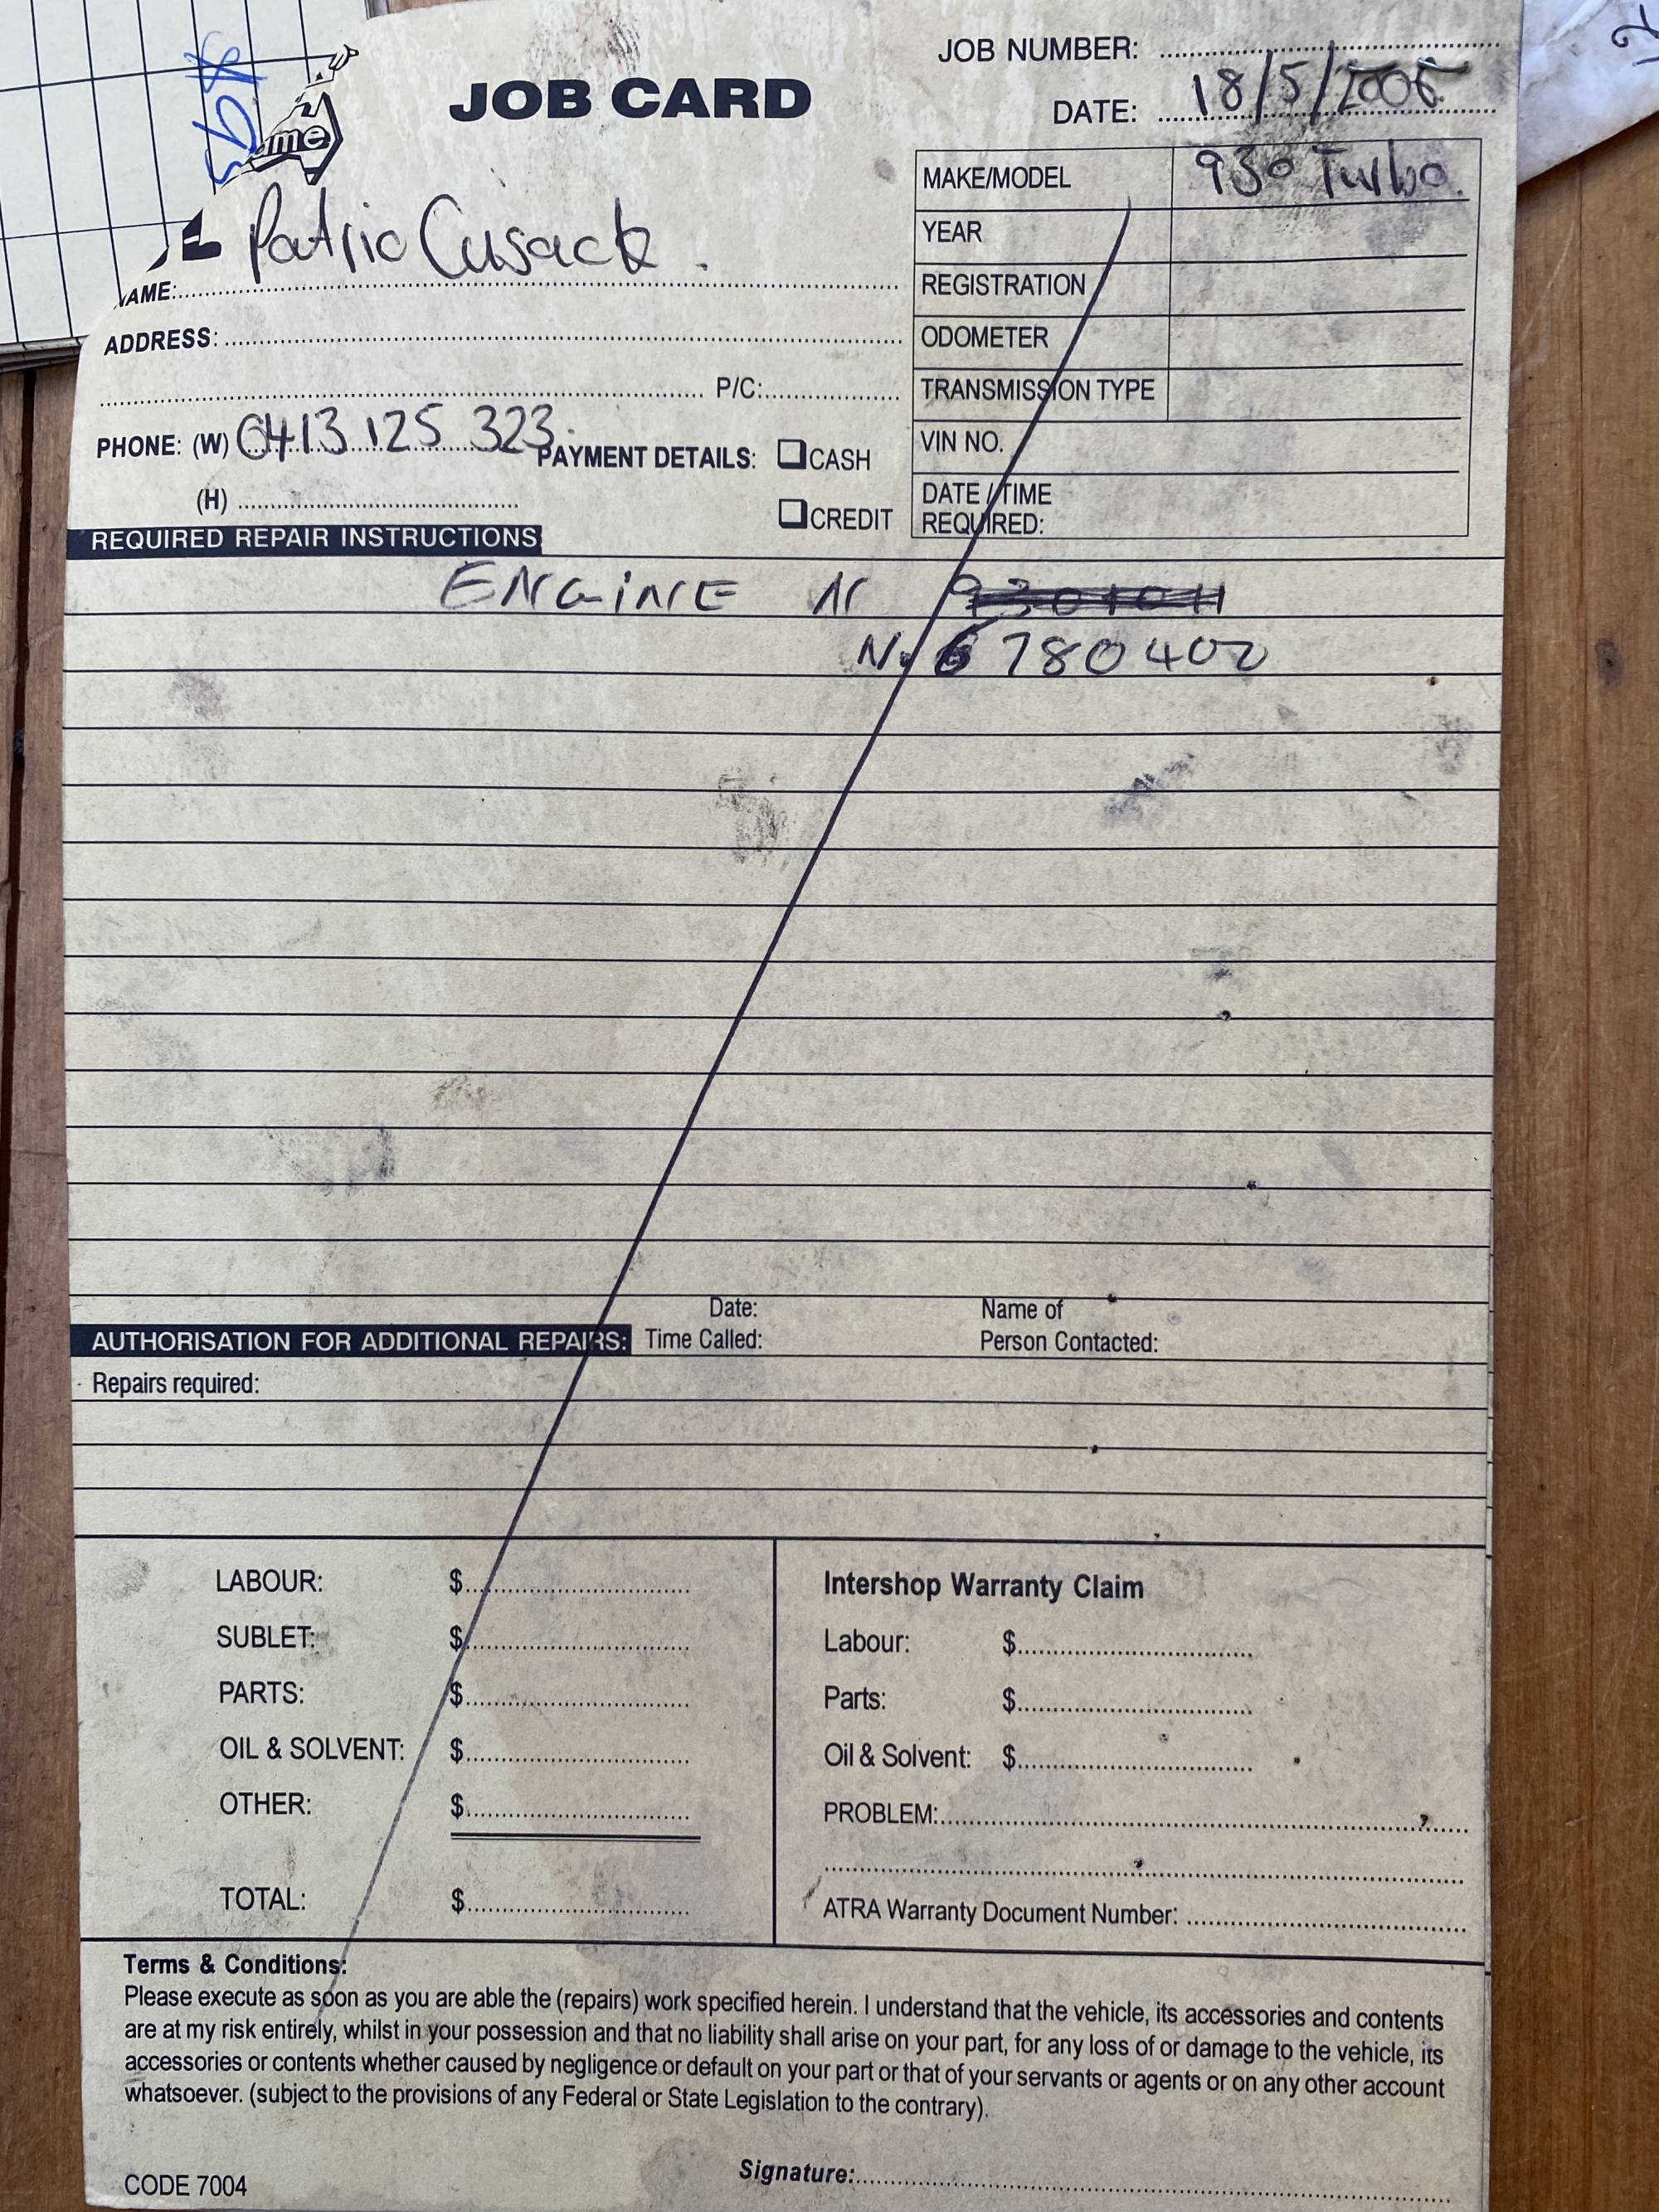 JOB CARD
JOB NUMBER:
DATE: 18/5/2005
me
MAKE/MODEL 930 Turbo.
Patric Cusack.
YEAR
AME:
REGISTRATION
ADDRESS:
ODOMETER
P/C:
TRANSMISSION TYPE
PHONE: (W) 0413 125 323.
PAYMENT DETAILS: CASH
VIN NO.
(H)
CREDIT
DATE / TIME
REQUIRED:
REQUIRED REPAIR INSTRUCTIONS
ENGINE N 930104
N. 6780402
Date:
Name of
AUTHORISATION FOR ADDITIONAL REPAIRS: Time Called:
Person Contacted:
Repairs required:
LABOUR: $
SUBLET: $
PARTS: $
OIL & SOLVENT: $
OTHER: $
TOTAL: $
Intershop Warranty Claim
Labour: $
Parts: $
Oil & Solvent: $
PROBLEM:
ATRA Warranty Document Number:
Terms & Conditions:
Please execute as soon as you are able the (repairs) work specified herein. I understand that the vehicle, its accessories and contents
are at my risk entirely, whilst in your possession and that no liability shall arise on your part, for any loss of or damage to the vehicle, its
accessories or contents whether caused by negligence or default on your part or that of your servants or agents or on any other account
whatsoever. (subject to the provisions of any Federal or State Legislation to the contrary).
Signature:
CODE 7004